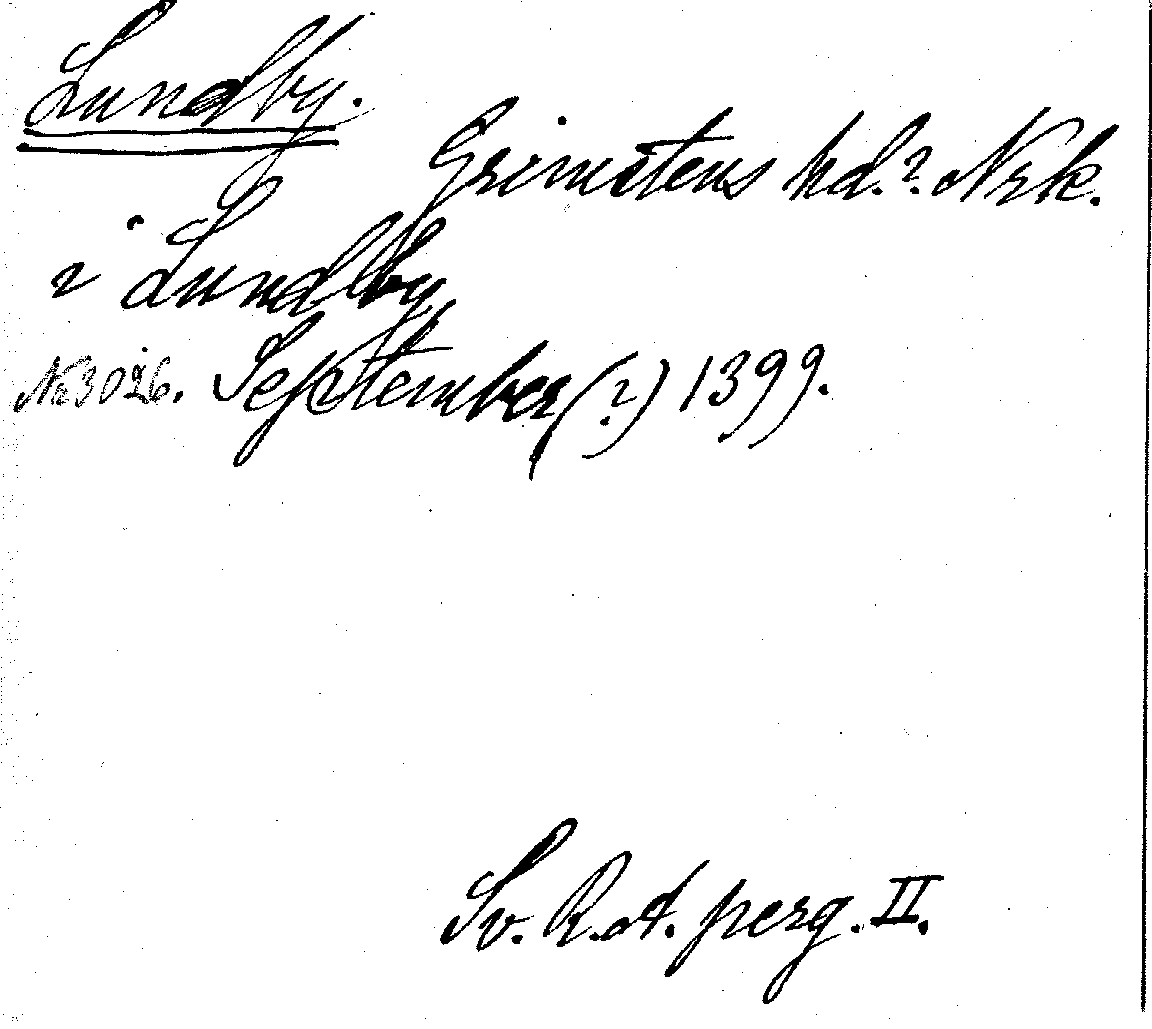 Lundby.
Grimstens hd.? Nrk.
i Lundby
Nr 3026. September (?) 1399.
Sv. R.A. perg. II.